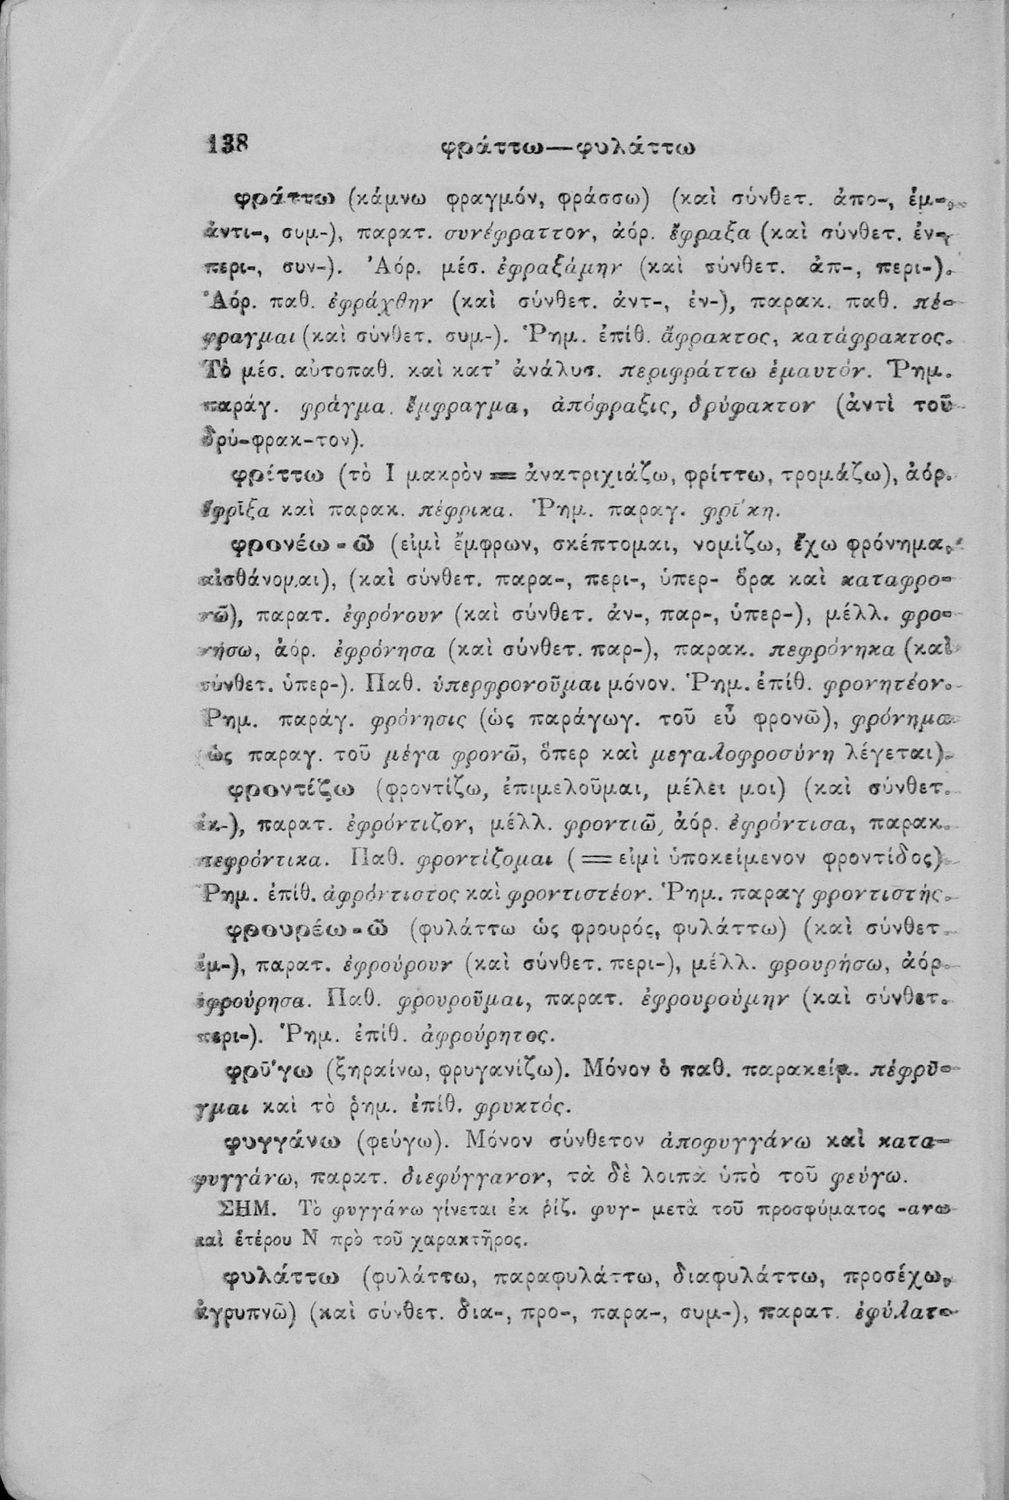 138
φράττω—φυλάττω
φράττω (κάμνω φραγμόν, φράσσω) (καὶ σύνθετ. ἀπο-, ἐμ-,
ἀντι-, συμ-), παρατ. συνέφραττον, ἀόρ. ἔφραξα (καὶ σύνθετ. ἐν-,
περι-, συν-). Ἀόρ. μέσ. ἐφραξάμην (καὶ σύνθετ. ἀπ-, περι-).
Ἀόρ. παθ. ἐφράχθην (καὶ σύνθετ. ἀντ-, ἐν-), παρακ. παθ. πέ-
φραγμαι (καὶ σύνθετ. συμ-). Ῥημ. ἐπίθ. ἄφρακτος, κατάφρακτος.
Τὸ μέσ. αὐτοπαθ. καὶ κατ’ ἀνάλυσ. περιφράττω ἐμαυτόν. Ῥημ.
παράγ. φράγμα. ἔμφραγμα, ἀπόφραξις, δρύφακτον (ἀντὶ τοῦ
δρύ-φρακ-τον).
φρίττω (τὸ Ι μακρὸν = ἀνατριχιάζω, φρίττω, τρομάζω), ἀόρ.
ἔφριξα καὶ παρακ. πέφρικα. Ῥημ. παραγ. φρῑ́κη.
φρονέω-ῶ (εἰμὶ ἔμφρων, σκέπτομαι, νομίζω, ἔχω φρόνημα,
αἰσθάνομαι), (καὶ σύνθετ. παρα-, περι-, ὑπερ- ὅρα καὶ καταφρο-
νῶ), παρατ. ἐφρόνουν (καὶ σύνθετ. ἀν-, παρ-, ὑπερ-), μέλλ. φρο-
νήσω, ἀόρ. ἐφρόνησα (καὶ σύνθετ. παρ-), παρακ. πεφρόνηκα (καὶ
σύνθετ. ὑπερ-). Παθ. ὑπερφρονοῦμαι μόνον. Ῥημ. ἐπίθ. φρονητέον.
Ῥημ. παράγ. φρόνησις (ὡς παράγωγ. τοῦ εὖ φρονῶ), φρόνημα
(ὡς παραγ. τοῦ μέγα φρονῶ, ὅπερ καὶ μεγαλοφροσύνη λέγεται).
φροντίζω (φροντίζω, ἐπιμελοῦμαι, μέλει μοι) (καὶ σύνθετ.
ἐκ-), παρατ. ἐφρόντιζον, μέλλ. φροντιῶ, ἀόρ. ἐφρόντισα, παρακ.
πεφρόντικα. Παθ. φροντίζομαι (=εἰμὶ ὑποκείμενον φροντίδος).
Ῥημ. ἐπίθ. ἀφρόντιστος καὶ φροντιστέον. Ῥημ. παραγ φροντιστής.
φρουρέω-ῶ (φυλάττω ὡς φρουρός, φυλάττω) (καὶ σύνθετ.
ἐμ-), παρατ. ἐφρούρουν (καὶ σύνθετ. περι-), μέλλ. φρουρήσω, ἀόρ.
ἐφρούρησα. Παθ. φρουροῦμαι, παρατ. ἐφρουρούμην (καὶ σύνθετ.
περι-). Ῥημ. ἐπίθ. ἀφρούρητος.
φρῡ́γω (ξηραίνω, φρυγανίζω). Μόνον ὁ παθ. παρακείμ. πέφρῡ-
γμαι καὶ τὸ ῥημ. ἐπίθ. φρυκτός.
φυγγάνω (φεύγω). Μόνον σύνθετον ἀποφυγγάνω καὶ κατα-
φυγγάνω, παρατ. διεφύγγανον, τὰ δὲ λοιπὰ ὑπὸ τοῦ φεύγω.
ΣΗΜ. Τὸ φυγγάνω γίνεται ἐκ ῥίζ. φυγ- μετὰ τοῦ προσφύματος -ανω
καὶ ἑτέρου Ν πρὸ τοῦ χαρακτῆρος.
φυλάττω (φυλάττω, παραφυλάττω, διαφυλάττω, προσέχω,
ἀγρυπνῶ) (καὶ σύνθετ. δια-, προ-, παρα-, συμ-), παρατ. ἐφύλατ-